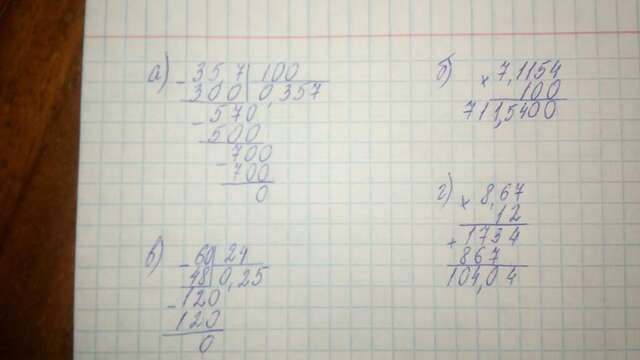 а) - 357 | 100
300 | 0,357
- 570
500
- 700
700
0
б) × 7,1154
100
711,5400
в) - 60 | 24
48 | 0,25
- 120
120
0
г) × 8,67
12
+ 1734
867
104,04